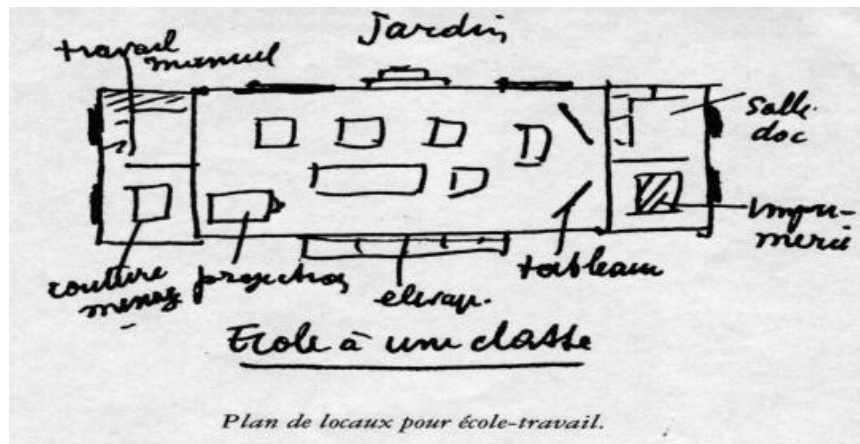 Jardin
travail
manuel
Salle
doc
Impri-
merie
couture
menag
projection
elevage.
tableau
Ecole à une classe
Plan de locaux pour école-travail.